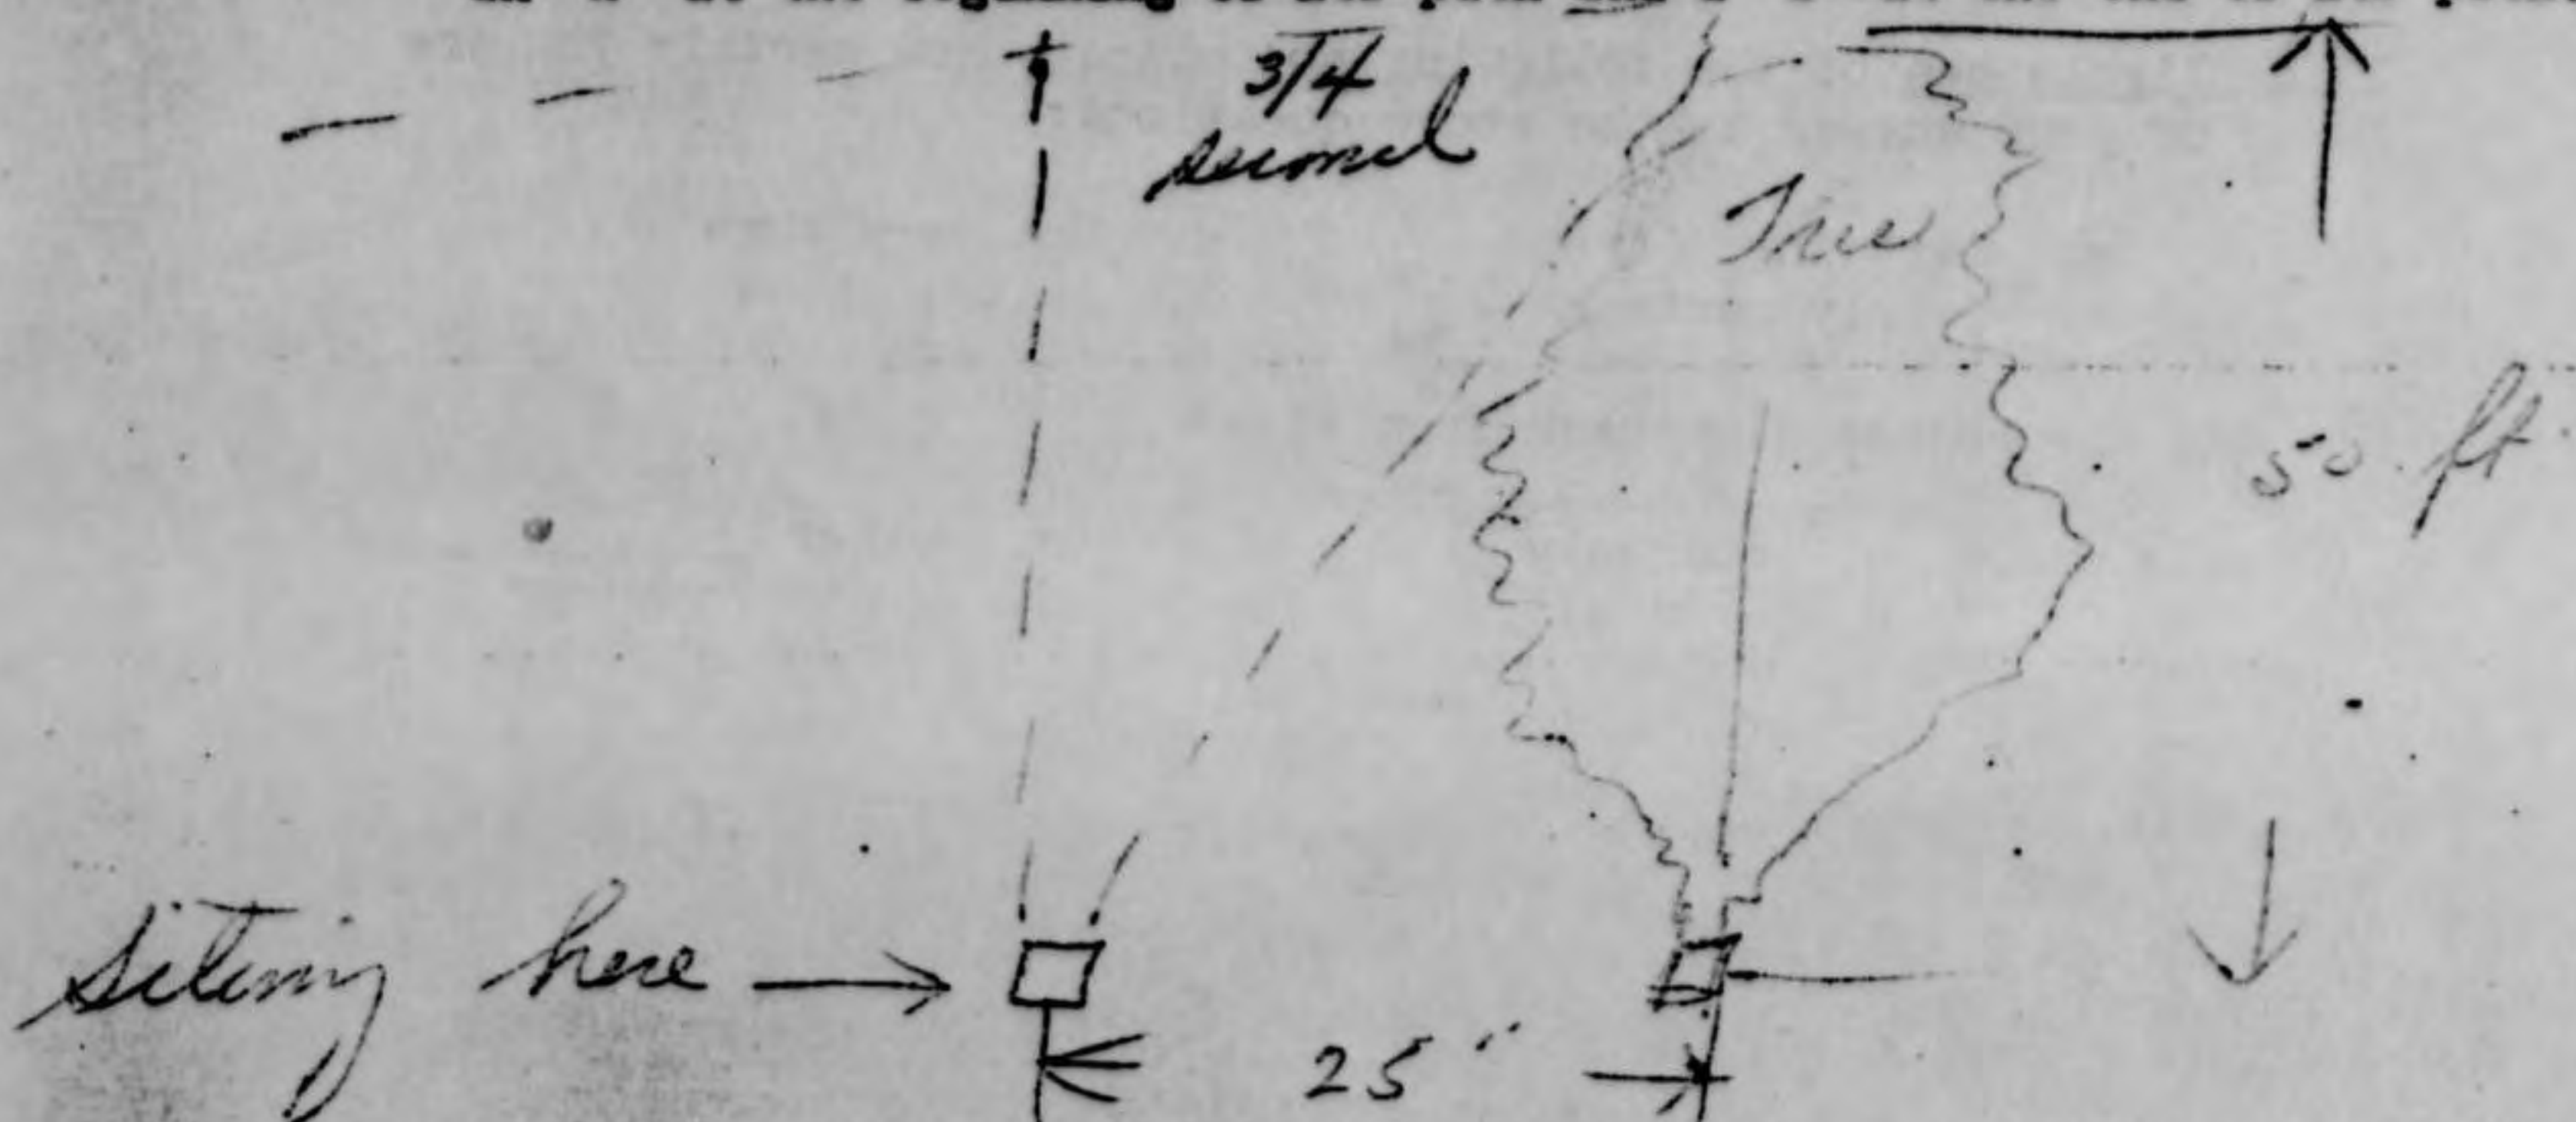 3/4
second
Tree
50 ft.
siting here
25'